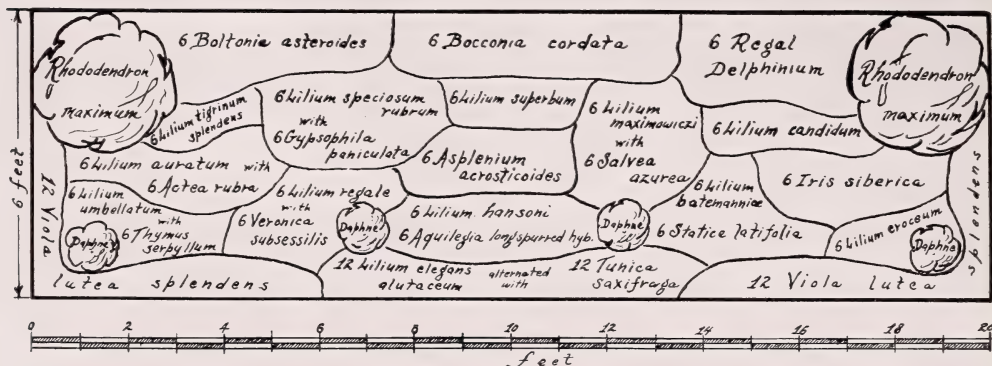 6 feet
6 Boltonia asteroides
6 Bocconia cordata
6 Regal
Delphinium
Rhododendron
maximum
Rhododendron
maximum
6 Lilium tigrinum
splendens
6 Lilium speciosum
rubrum
with
6 Gypsophila
paniculata
6 Lilium superbum
6 Lilium
maximowiczi
with
6 Salvea
azurea
6 Lilium candidum
6 Lilium auratum with
6 Actea rubra
6 Asplenium
acrosticoides
6 Iris siberica
12 Viola
lutea splendens
6 Lilium
umbellatum
with
6 Thymus
serbyllum
Daphne
6 Lilium regale
with
6 Veronica
subsessilis
Daphne
6 Lilium hansoni
6 Aquilegia longspurred hyb.
Daphne
6 Lilium
batemanniae
6 Statice latifolia
6 Lilium croceum
Daphne
12 Lilium elegans
alutaceum
alternated
with
12 Tunica
saxifraga
12 Viola lutea
splendens
0 2 4 6 8 10 12 14 16 18 20
feet